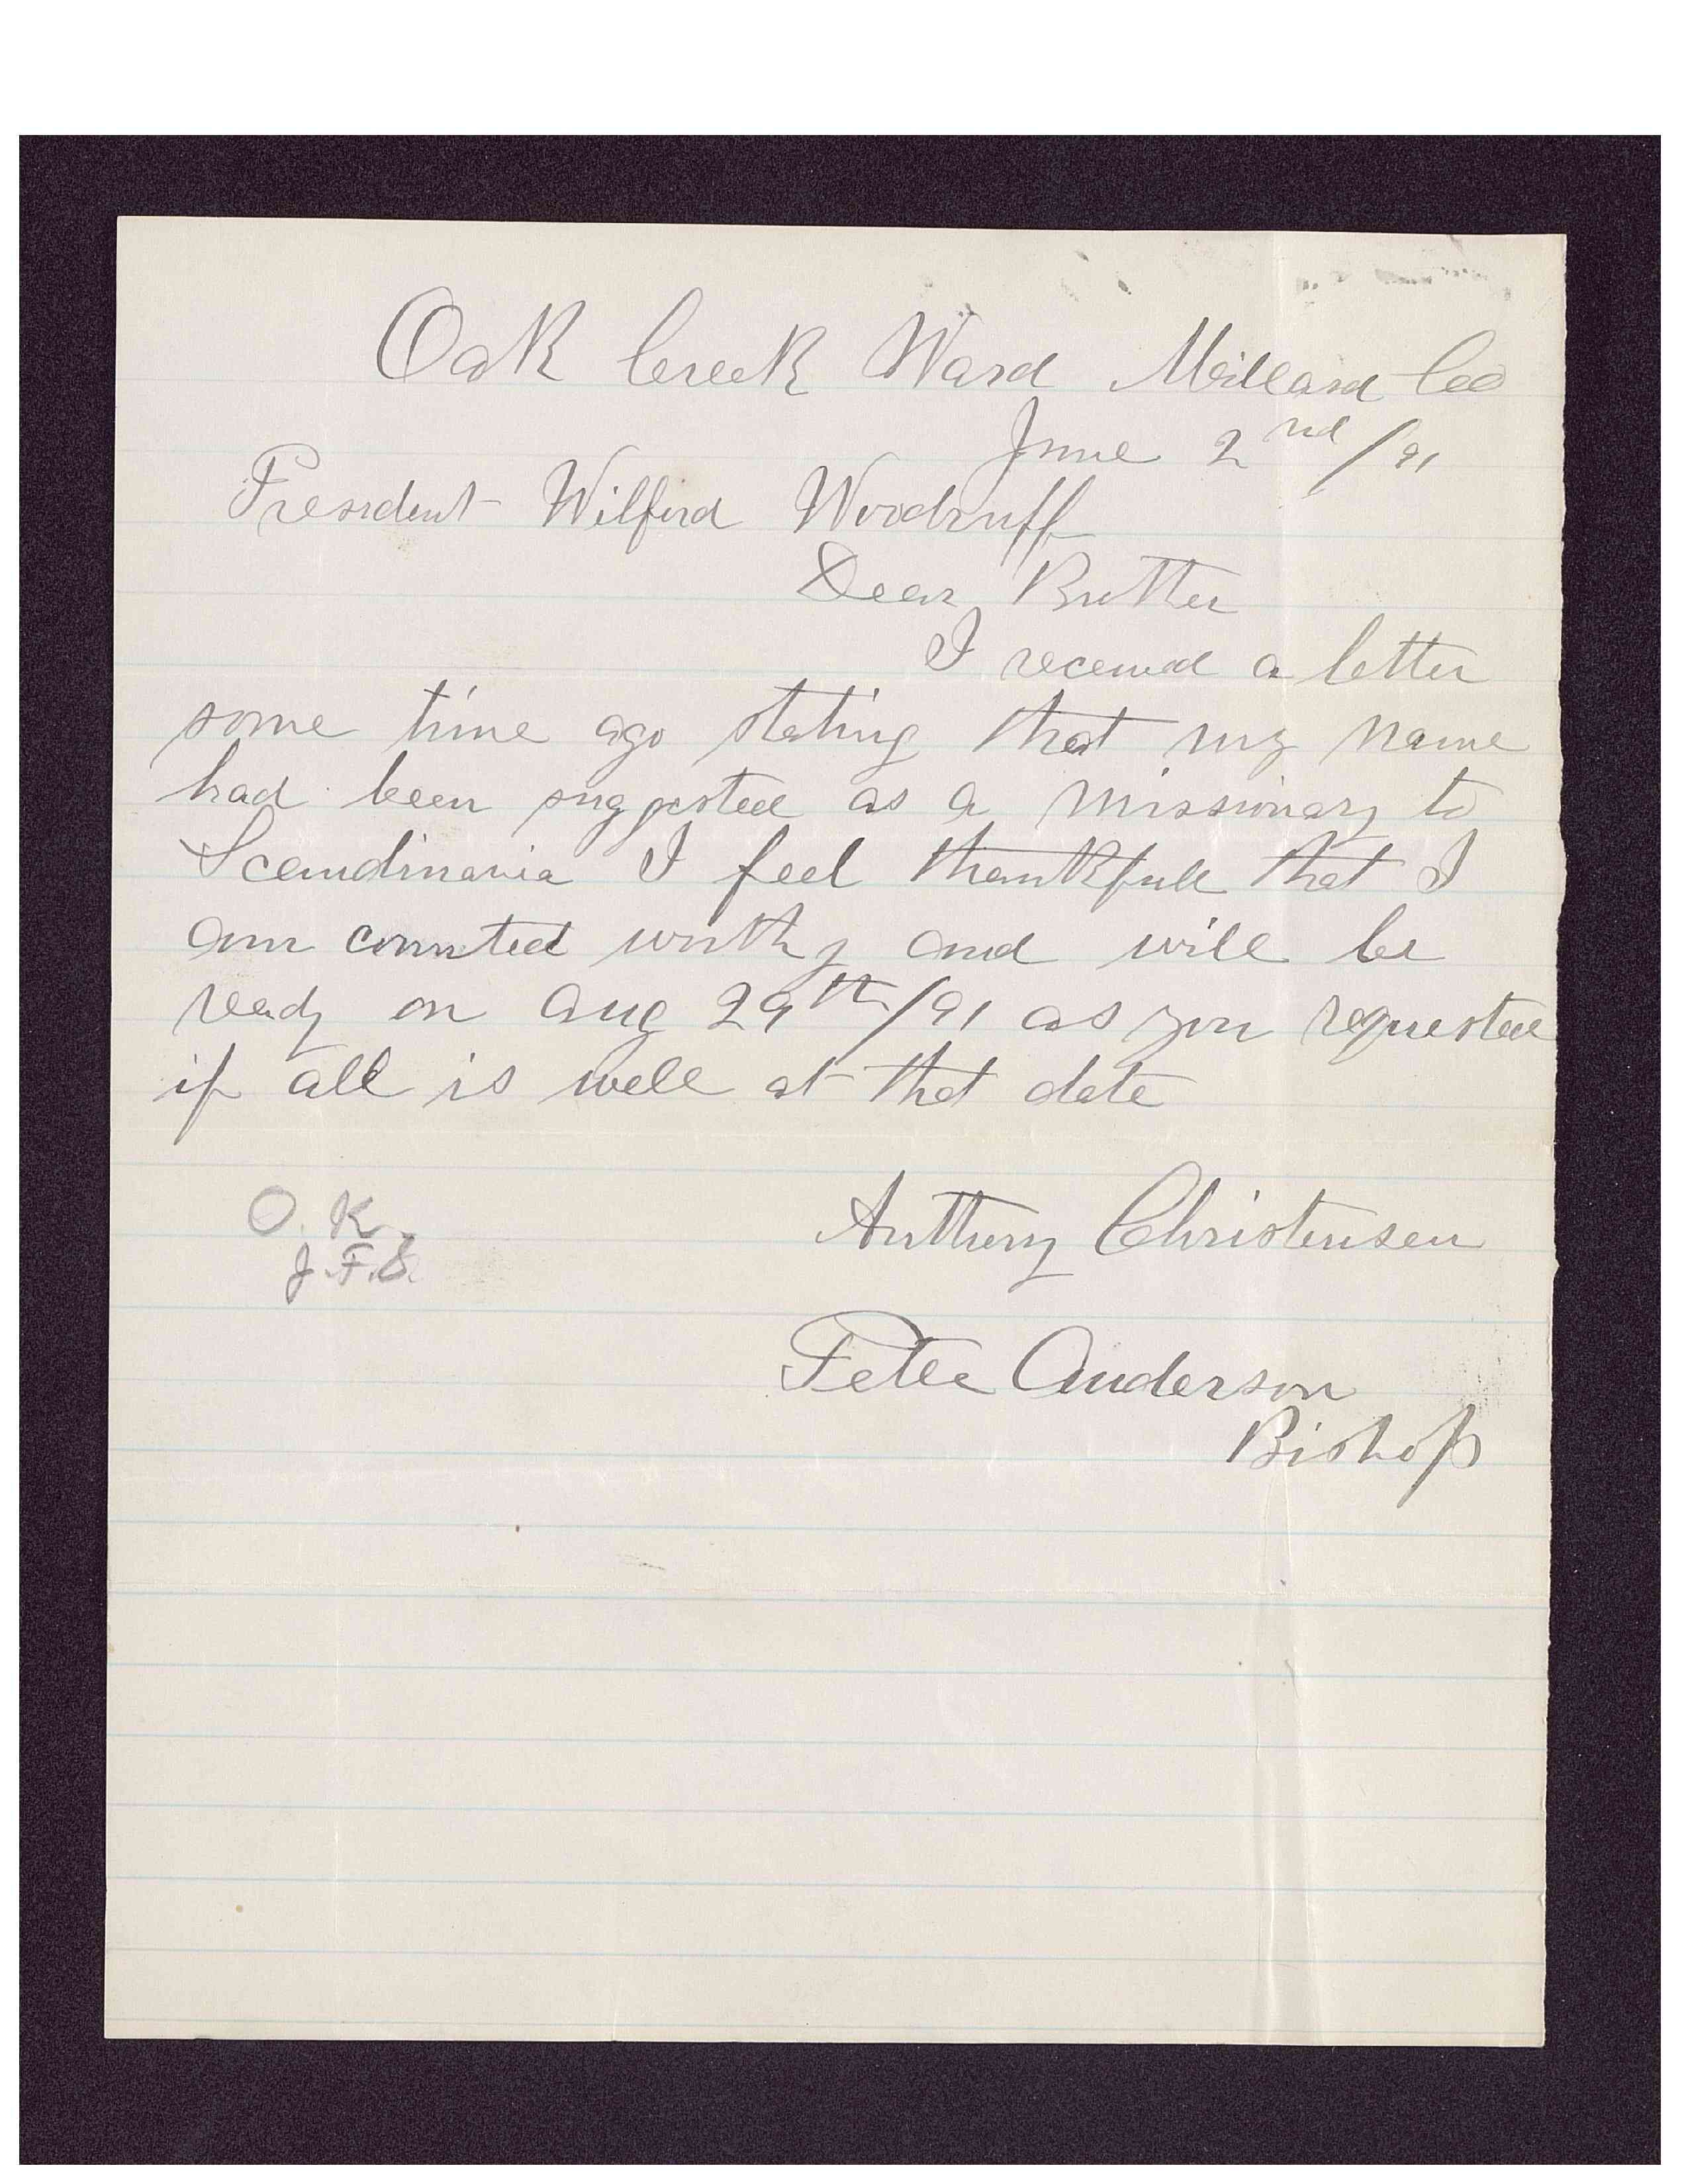 Oak Creek Ward Millard Co
June 2nd/91
President Wilford Woodruff
Dear Brother
I received a letter
some time ago stating that my name
had been suggested as a missionary to
Scandinavia I feel thankfull that I
am counted worthy and will be
ready on Aug 29th/91 as you requested
if all is well at that date
Anthony Christensen
O. K.
J. F. S.
Peter Anderson
Bishop